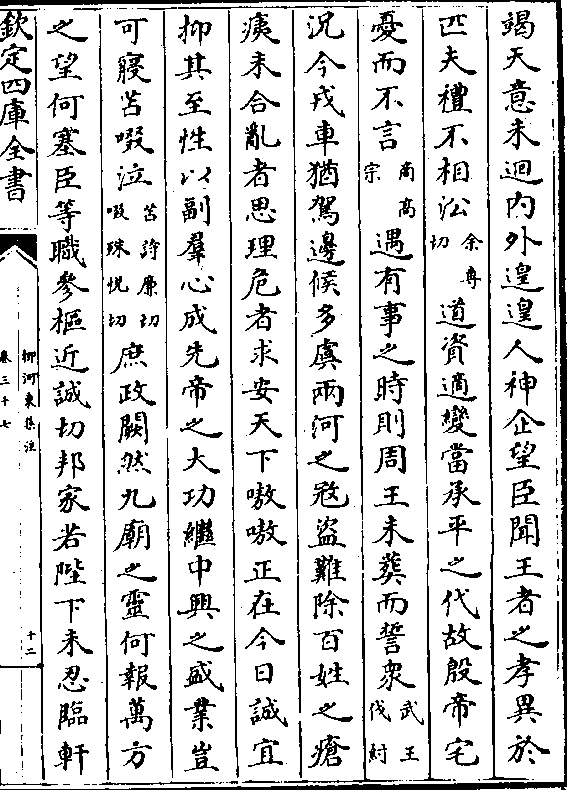 竭天意未迴内外遑遑人神企望臣聞王者之孝異於
匹夫禮不相㳂余專切道資適變當承平之代故殷帝宅
憂而不言商高宗遇有事之時則周王未葬而誓衆武王伐紂
況今戎車猶駕邊候多虞兩河之㓂盜難除百姓之瘡
痍未合亂者思理危者求安天下嗷嗷正在今日誠宜
抑其至性以副羣心成先帝之大功繼中興之盛業豈
可寢苫啜泣苫詩廉切啜珠悦切庶政闕然九廟之靈何報萬方
之望何塞臣等職參樞近誠切邦家若陛下未忍臨軒
欽定四庫全書
柳河東集注
卷三十七
十二